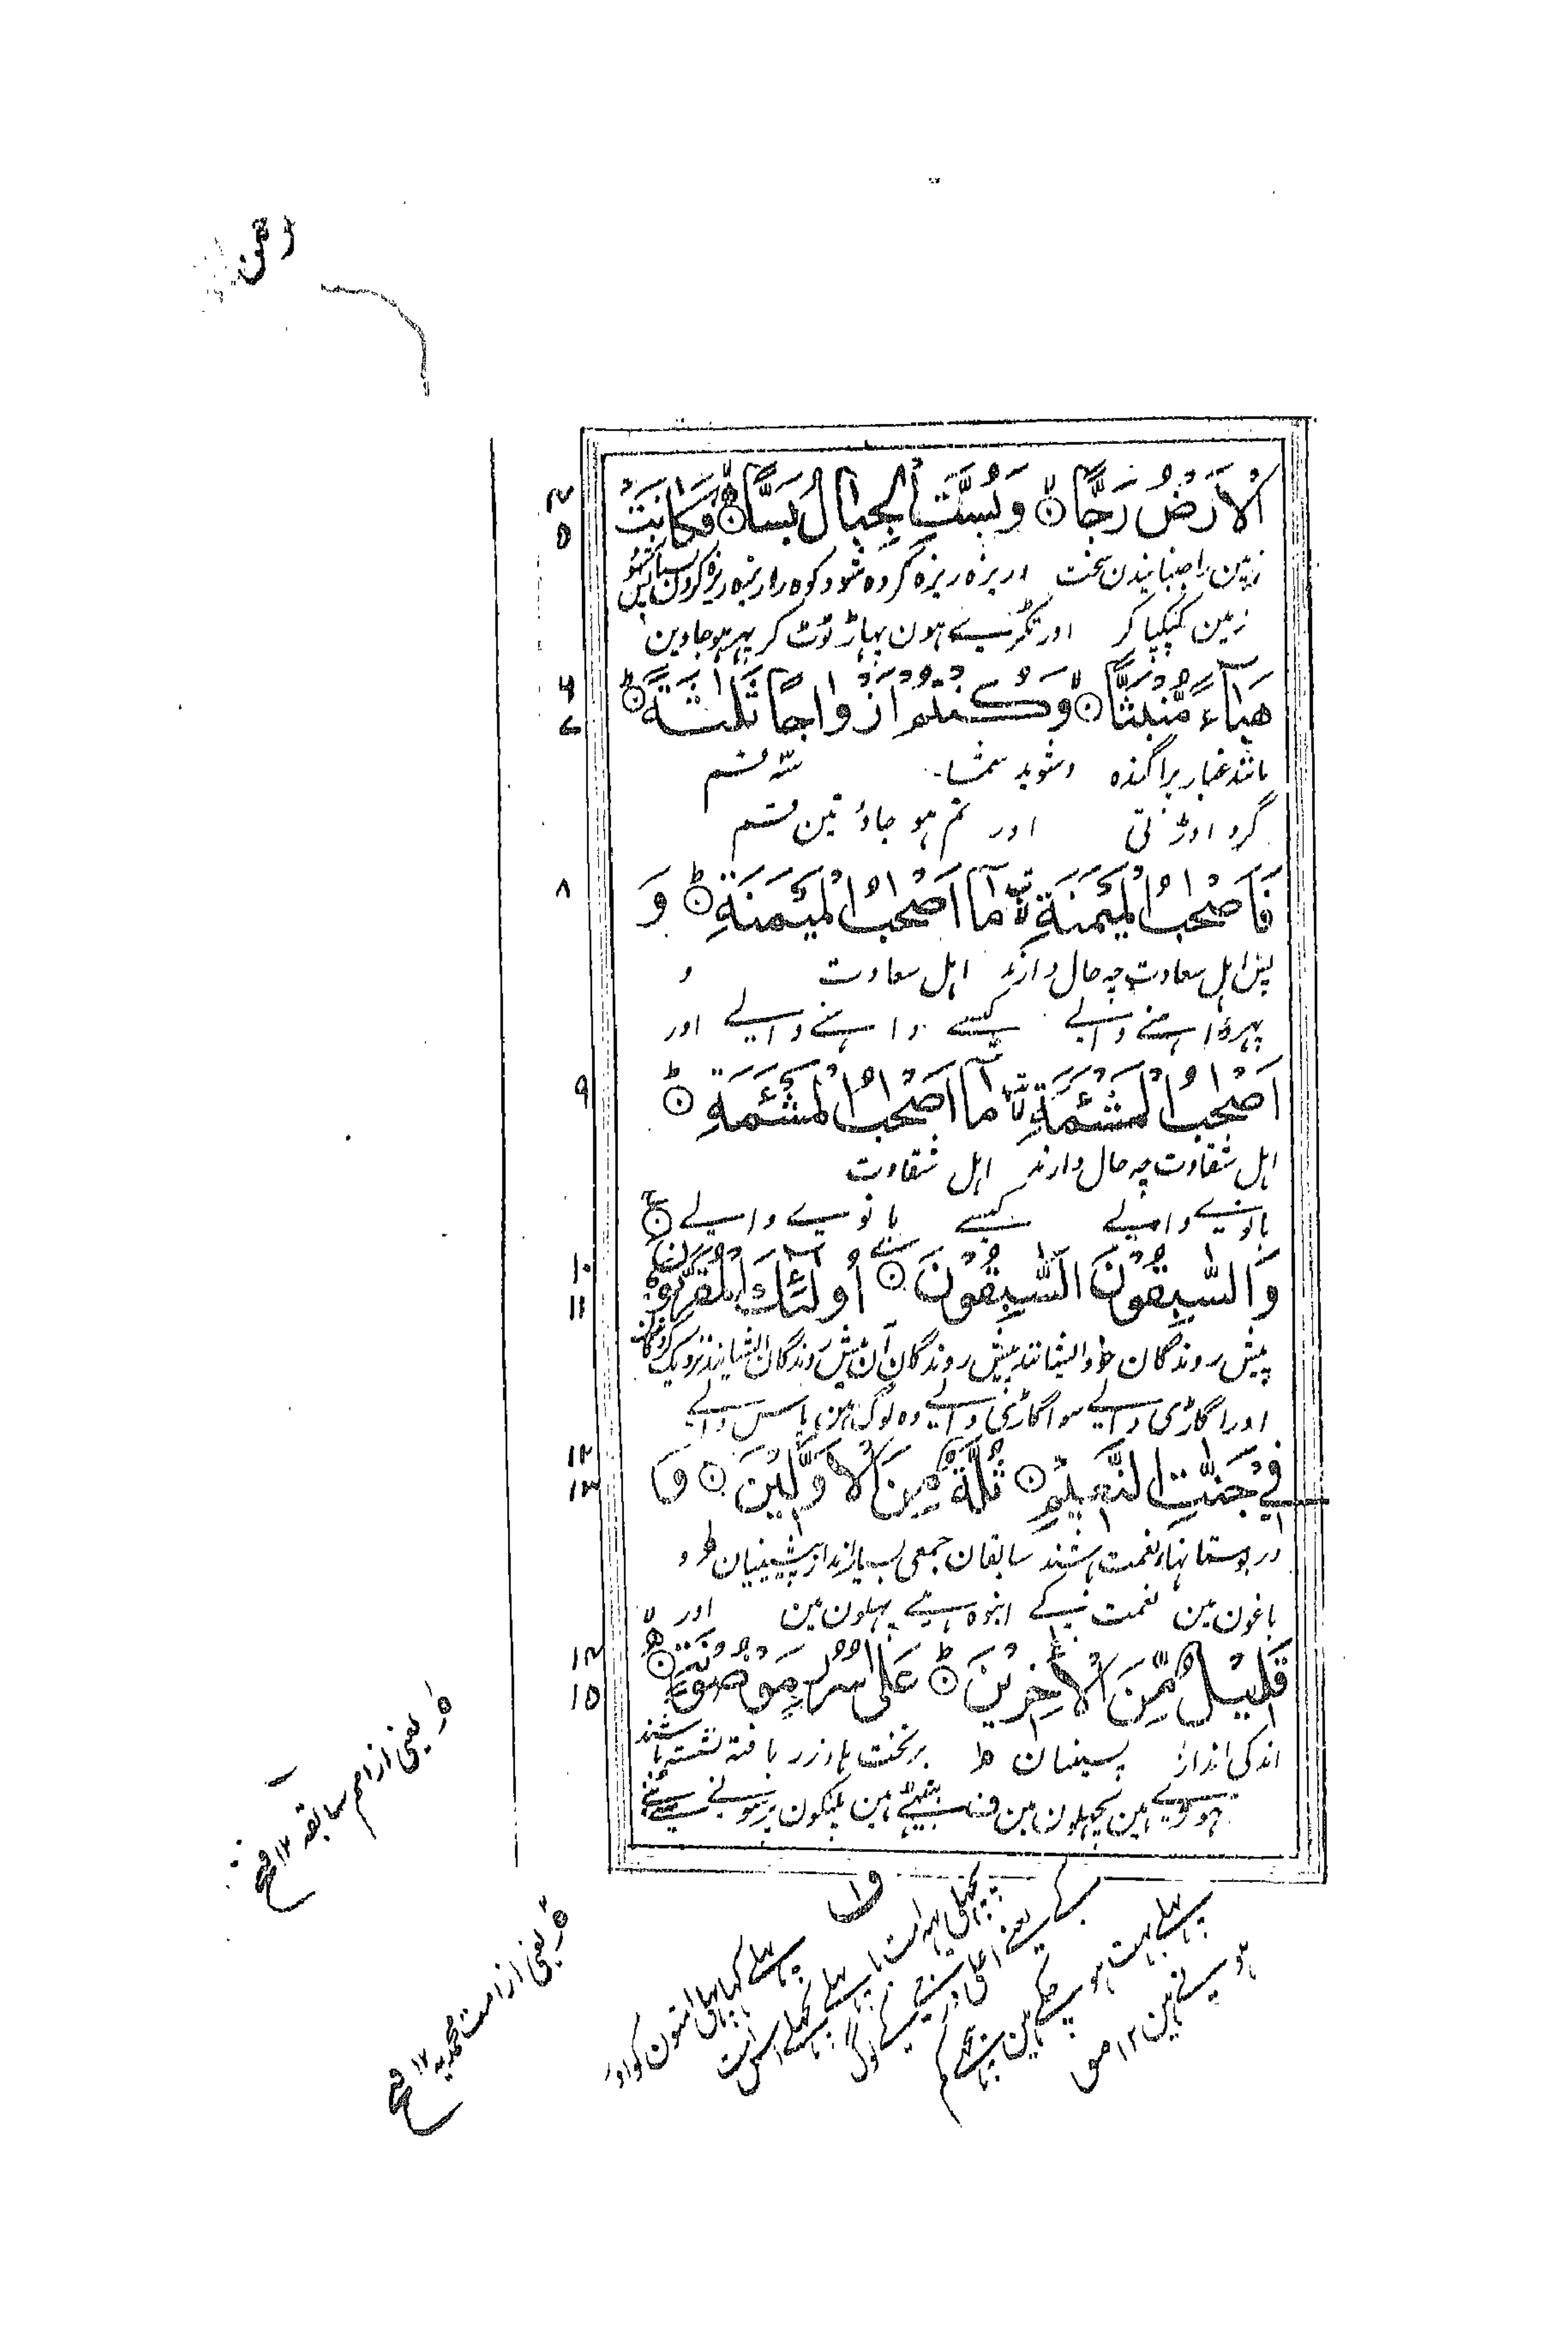 رحمن
الْاَرْضُ رَجًّا ۙ وَّ بُسَّتِ الْجِبَالُ بَسًّا ۙ فَكَانَتْ
زمین را جنبانیدن سخت اریزه ریزه کرده شود کوه را ریزه ریزه کردن پس
زمین کپکپا کر اور ٹکڑے ہون پہاڑ ٹوٹ کر پہر ہو جاوین
۴
۵
هَبَآءً مُّنْۢبَثًّا ۙ وَّ كُنْتُمْ اَزْوَاجًا ثَلٰثَةً ؕ
مانند غبار پراگنده وشوید شما سه قسم
گرد اوڑتی اور تم ہو جاؤ تین قسم
۶
۷
فَاَصْحٰبُ الْمَيْمَنَةِ ۙ مَاۤ اَصْحٰبُ الْمَيْمَنَةِ ؕ وَ
پس اہل سعادت چہ حال دارند اہل سعادت و
پہر داہنے والے کیسے داہنے والے اور
۸
اَصْحٰبُ الْمَشْـَٔمَةِ ۙ مَاۤ اَصْحٰبُ الْمَشْـَٔمَةِ ؕ
اہل شقاوت چہ حال دارند اہل شقاوت
بانوین والے کیسے بانوین والے
۹
وَ السّٰبِقُوْنَ السّٰبِقُوْنَ ۚ اُولٰٓئِكَ الْمُقَرَّبُوْنَ ۚ
پیش روندگان ایشانند پیش روندگان آن پیش روندگان ایشانند نزدیک
اور اگاڑی والے سو اگاڑی والے وہ لوگ ہین پاس والے
۱۰
۱۱
فِيْ جَنّٰتِ النَّعِيْمِ ۝ ثُلَّةٌ مِّنَ الْاَوَّلِيْنَ ۝ وَ
در بوستانہاء نعمت باشند سابقان جمعی بسیارند از پیشینیان ط و
باغون مین نعمت کے انبوہ ہے پہلون مین اور
۱۲
۱۳
قَلِيْلٌ مِّنَ الْاٰخِرِيْنَ ؕ عَلٰى سُرُرٍ مَّوْضُوْنَةٍ ۙ
اندکی اند از پسینان ط بر تخت ہاء زر بافتہ نشستہ باشند
تھوڑے ہین پچہلون مین ف بیٹھے ہین پلنگون پر سونے سے
۱۴
۱۵
ط یعنی از امم سابقہ ۱۲ فتح
ط یعنی از امت محمدیہ ۱۲ فتح
ف۱
پہلے کہا پہلی امتون کو اور
پچھلی یہ امت یا پہلے پچھلے اسی امت
کے یعنے اعلی درجے کے لوگ
پہلے بہت ہو چکے ہین پیچھے کم
ہوتے ہین ۱۲ مو